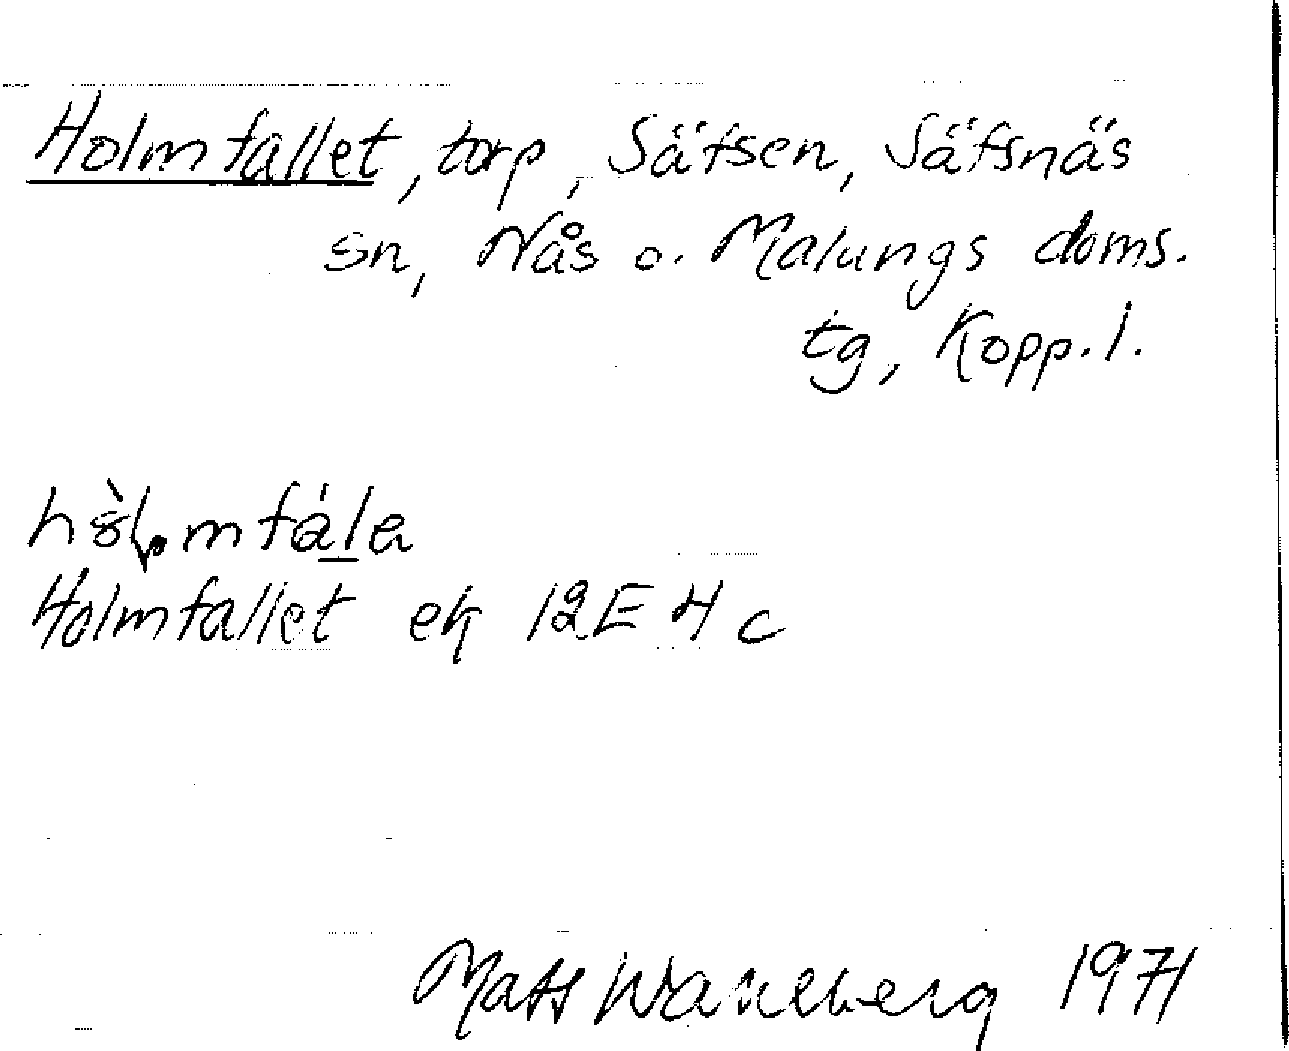 Holmfallet, torp, Säfsen, Säfsnäs
sn, Nås o. Malungs doms.
tg, Kopp. l.
Holmfallet ek 12E 4 c
Mats Wahlberg 1971